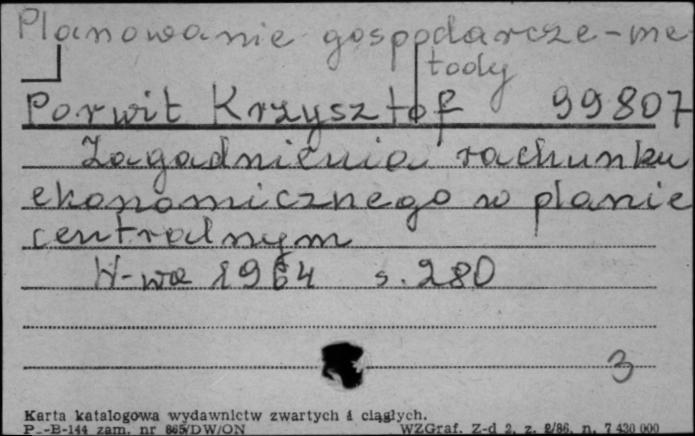 Planowanie gospodarcze-me-
tody
Porwit Krzysztof 99807
Zagadnienia rachunku
ekonomicznego w planie
centralnym
W-wa 1964 s. 280
3
Karta katalogowa wydawnictw zwartych i ciągłych.
P_-B-144 zam. nr 865/DW/ON WZGraf. Z-d 2, z. 2/86, n. 7 430 000